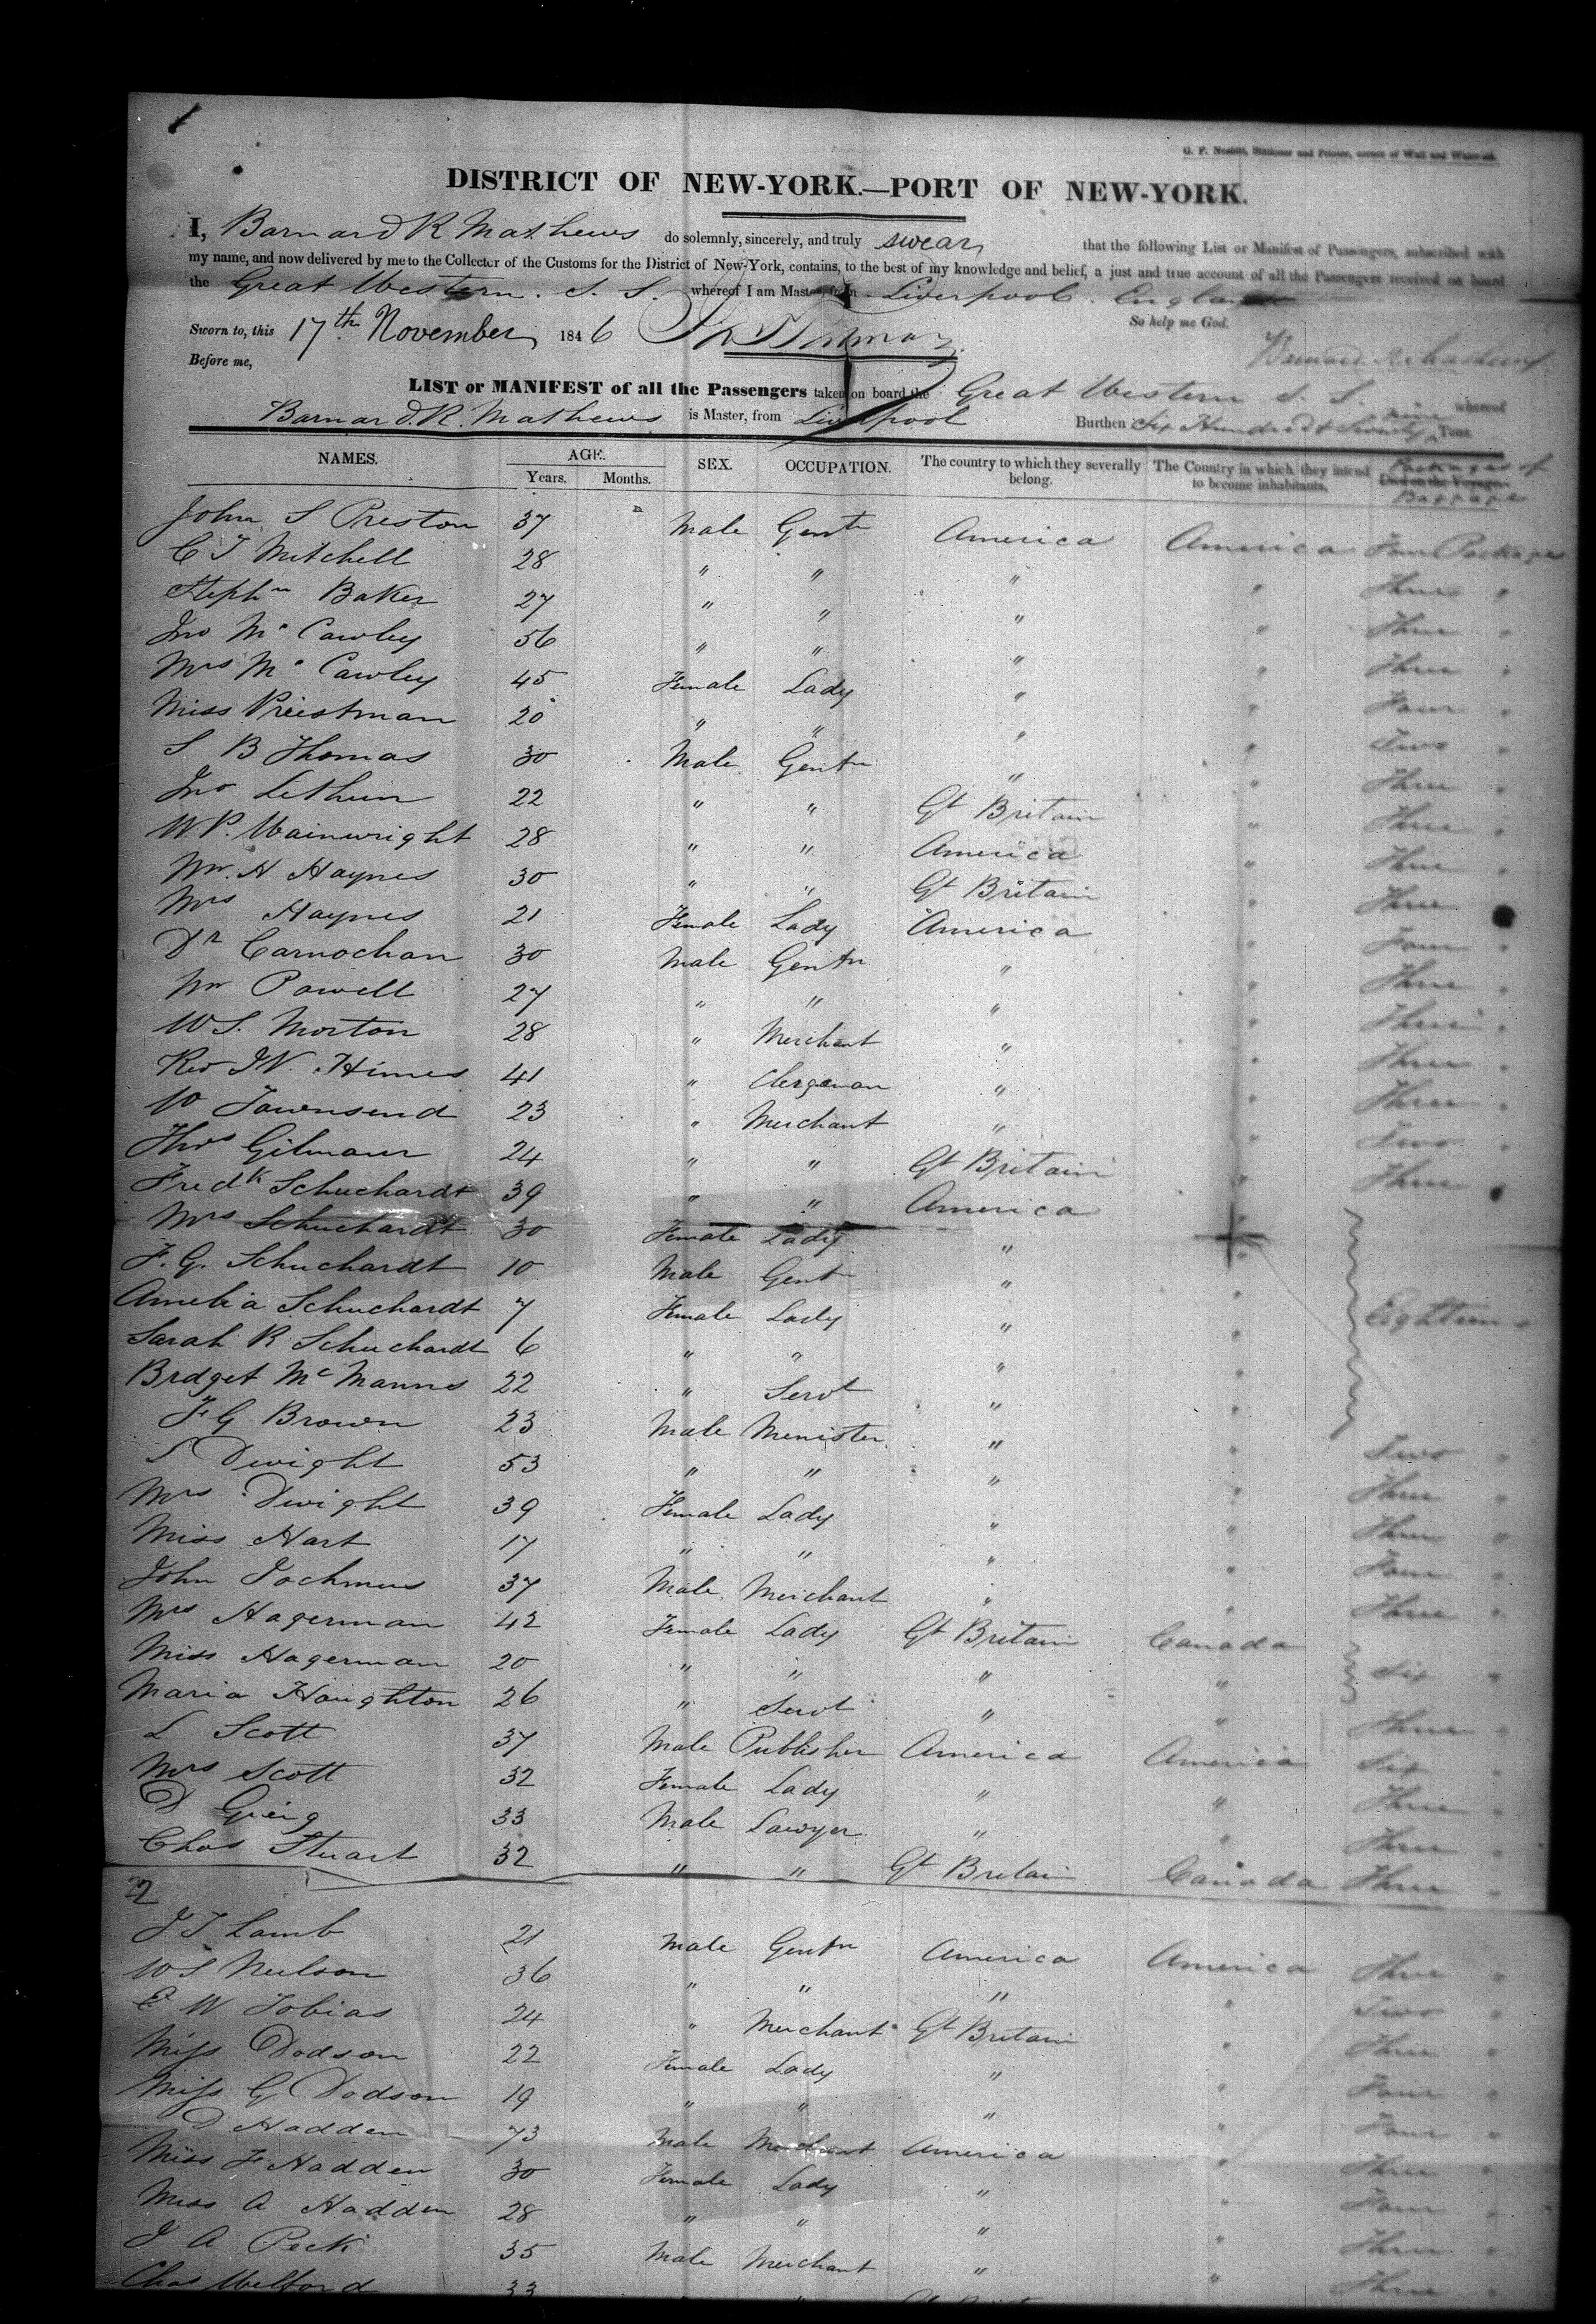 G. F. Nesbitt, Stationer and Printer, corner of Wall and Water-sts.
DISTRICT OF NEW-YORK.—PORT OF NEW-YORK.
I, Barnard R Mathews do solemnly, sincerely, and truly swear that the following List or Manifest of Passengers, subscribed with
my name, and now delivered by me to the Collector of the Customs for the District of New-York, contains, to the best of my knowledge and belief, a just and true account of all the Passengers received on board
the Great Western S. S. whereof I am Master from Liverpool. England
So help me God.
Sworn to, this 17th November, 1846
Before me,
LIST or MANIFEST of all the Passengers taken on board the Great Western S. S. whereof
Barnard. R. Mathews is Master, from Liverpool Burthen Six Hundred & Seventy nine Tons
NAMES. AGE. SEX. OCCUPATION. The country to which they severally belong. The Country in which they intend to become inhabitants. Died on the Voyage. Packages of Baggage
Years. Months.
John S Preston 37 Male Gentn America America Four Packages
C T Mitchell 28 " " " " Three "
Stephn Baker 27 " " " " Three "
Jno Mc Cawley 56 " " " " Three "
Mrs Mc Cawley 45 Female Lady " " Four "
Miss Priestman 20 " " " " Two "
S B Thomas 30 Male Gentn " " Three "
Jno 22 " " Gt Britain " Three "
W. P. Wainwright 28 " " America " Three "
Wm. H Haynes 30 " " Gt Britain " Three "
Mrs Haynes 21 Female Lady America " Four "
Dr Carnochan 30 Male Gentn " " Three "
Wm Powell 27 " " " " Three "
W S. Morton 28 " Merchant " " Three "
Rev J V. Himes 41 " Clergman " " Three "
W Townsend 23 " Merchant " " Two "
Thos Gilmour 24 " " Gt Britain " Three "
Fredk Schuchardt 39 " " America "
Mrs Schuchardt 30 Female Lady " "
F. G. Schuchardt 10 Male Gentn " "
Amelia Schuchardt 7 Female Lady " " Eighteen "
Sarah R Schuchardt 6 " " " "
Brdget Mc Manns 22 " Servt " "
F G Brown 23 Male Menister " " Two "
S Dwight 53 " " " " Three "
Mrs Dwight 39 Female Lady " " Three "
Miss Hart 17 " " " " Four "
John Jochmus 37 Male Merchant " " Three "
Mrs Hagerman 42 Female Lady Gt Britain Canada
Miss Hagerman 20 " " " " Six "
Maria Haughton 26 " Servt " "
L Scott 37 Male Publisher America America Three "
Mrs Scott 32 Female Lady " " Six "
D Greig 33 Male Lawyer " " Three "
Chas Stuart 32 " " Gt Britain Canada Three "
2
J T Lamb 21 Male Gentn America America Three "
W S Neilson 36 " " " " Two "
E W Tobias 24 " Merchant Gt Britain " Three "
Miss Dodson 22 Female Lady " " Four "
Miss G Dodson 19 " " " " Four "
D Hadden 73 Male Merchant America " Three "
Miss F Hadden 30 Female Lady " " Four "
Miss A Hadden 28 " " " " Three "
J A Peck 35 Male Merchant " " Three "
Chas Welford 33